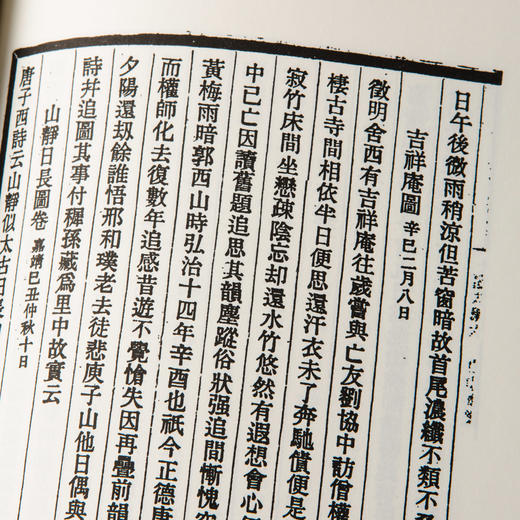 日午後微雨稍涼但苦窗暗故首尾濃纖不類不
吉祥庵圖 辛巳二月八日
徵明舍西有吉祥庵往歲嘗與亡友劉協中訪僧權
棲古寺間相依半日便思還汗衣未了奔馳債便是
寂竹床間坐戀疎陰忘却還水竹悠然有遐想會心
中已亡因讀舊題追思其韻塵蹤俗狀强追間慚愧
黃梅雨暗郭西山時弘治十四年辛酉也祇今正德庚
而權師化去復數年追感昔遊不覺愴失因再疊前韻
夕陽還刼餘誰悟邢和璞老去徒悲庾子山他日偶與
詩幷追圖其事付穉孫藏爲里中故實云
山靜日長圖卷 嘉靖己丑仲秋十日
唐子西詩云山靜似太古日長